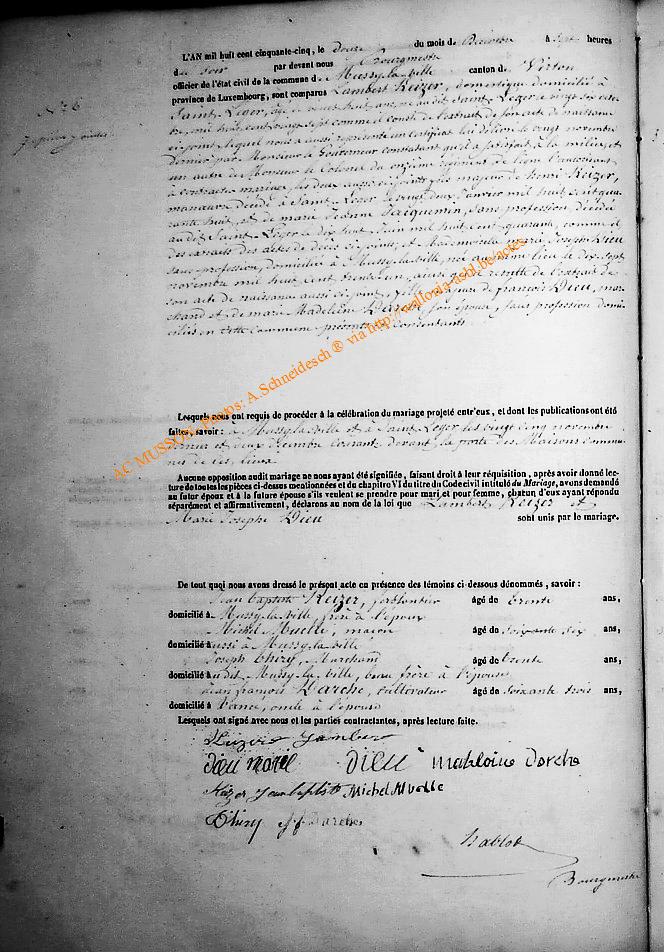 L'AN mil huit cent cinquante-cinq, le douze du mois de Décembre à sept heures
du soir par devant nous Bourgmestre
officier de l'état civil de la commune de Mussy-la-ville canton de Virton
province de Luxembourg, sont comparus Lambert Keizer, domestique domicilié à
Saint Leger, âgé de vingt huit ans, né au dit Saint Leger le vingt six
mil huit cent vingt sept comme il conste de l'extrait de son acte de naissance
ci-joint lequel nous a aussi représenté un certificat lui délivré le vingt novembre
dernier par Monsieur le Gouverneur constatant qu'il a satisfait à la milice et
un autre de Monsieur le Colonel du onzième régiment de ligne l'autorisant
à contracter mariage, les deux aussi ci-joints, fils majeur de henri Keizer,
manœuvre décédé à Saint Leger le vingt deux Janvier mil huit cent
huit, et de marie Jeanne Jacquemin, sans profession, décédée
audit Saint Leger le dix huit Juin mil huit cent quarante, comme il
des extraits des actes de décès ci-joints; et Mademoiselle Marie Joseph Dieu
sans profession, domiciliée à Mussy-la-ville, née au même lieu le dix sept
novembre mil huit cent trente un, ainsi qu'il résulte de l'extrait de
son acte de naissance aussi ci-joint, fille majeure de françois Dieu, marchand
et de marie Madeleine Darche son épouse, sans profession domiciliés
en cette commune présents et consentants
N° 26
7 pièces jointes
Lesquels nous ont requis de procéder à la célébration du mariage projeté entr'eux, et dont les publications ont été
faites, savoir: à Mussy-la-ville et à Saint Leger les vingt cinq novembre
dernier et deux décembre courant devant la porte des Maisons communes
de ces lieux
Aucune opposition audit mariage ne nous ayant été signifiée, faisant droit à leur réquisition, après avoir donné lec-
ture de toutes les pièces ci-dessus mentionnées et du chapitre VI du titre du Code civil intitulé du Mariage, avons demandé
au futur époux et à la future épouse s'ils veulent se prendre pour mari et pour femme, chacun d'eux ayant répondu
séparément et affirmativement, déclarons au nom de la loi que Lambert Keizer et
Marie Joseph Dieu sont unis par le mariage.
De tout quoi nous avons dressé le présent acte en présence des témoins ci-dessous dénommés, savoir:
Jean Baptiste Keizer, ferblantier âgé de trente ans,
domicilié à Mussy-la-ville, frère à l'époux
Michel Muelle, maçon âgé de soixante six ans,
domicilié aussi à Mussy-la-ville
Joseph Thiry, Marchand âgé de trente ans,
domicilié audit Mussy-la-ville, beau frère à l'épouse
Jean françois Darche, cultivateur âgé de soixante trois ans,
domicilié à Vance, oncle à l'épouse
Lesquels ont signé avec nous et les parties contractantes, après lecture faite.
Keizer Lambert
Dieu marie DIEU Madloine Darche
Keizer Jean baptiste Michel Muelle
Thiry Jf Darche
Hablot
Bourgmestre
AC MUSSON - Photos: A.Schneidesch ® via http://wallonia-asbl.be/actes